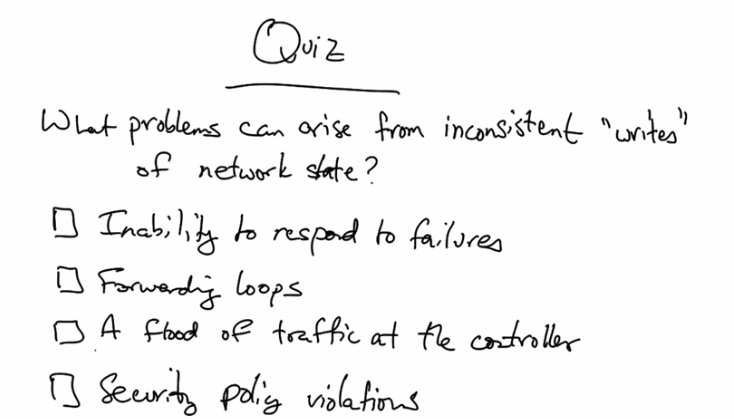 Quiz
What problems can arise from inconsistent "writes"
of network state?
Inability to respond to failures
Forwarding loops
A flood of traffic at the controller
Security policy violations